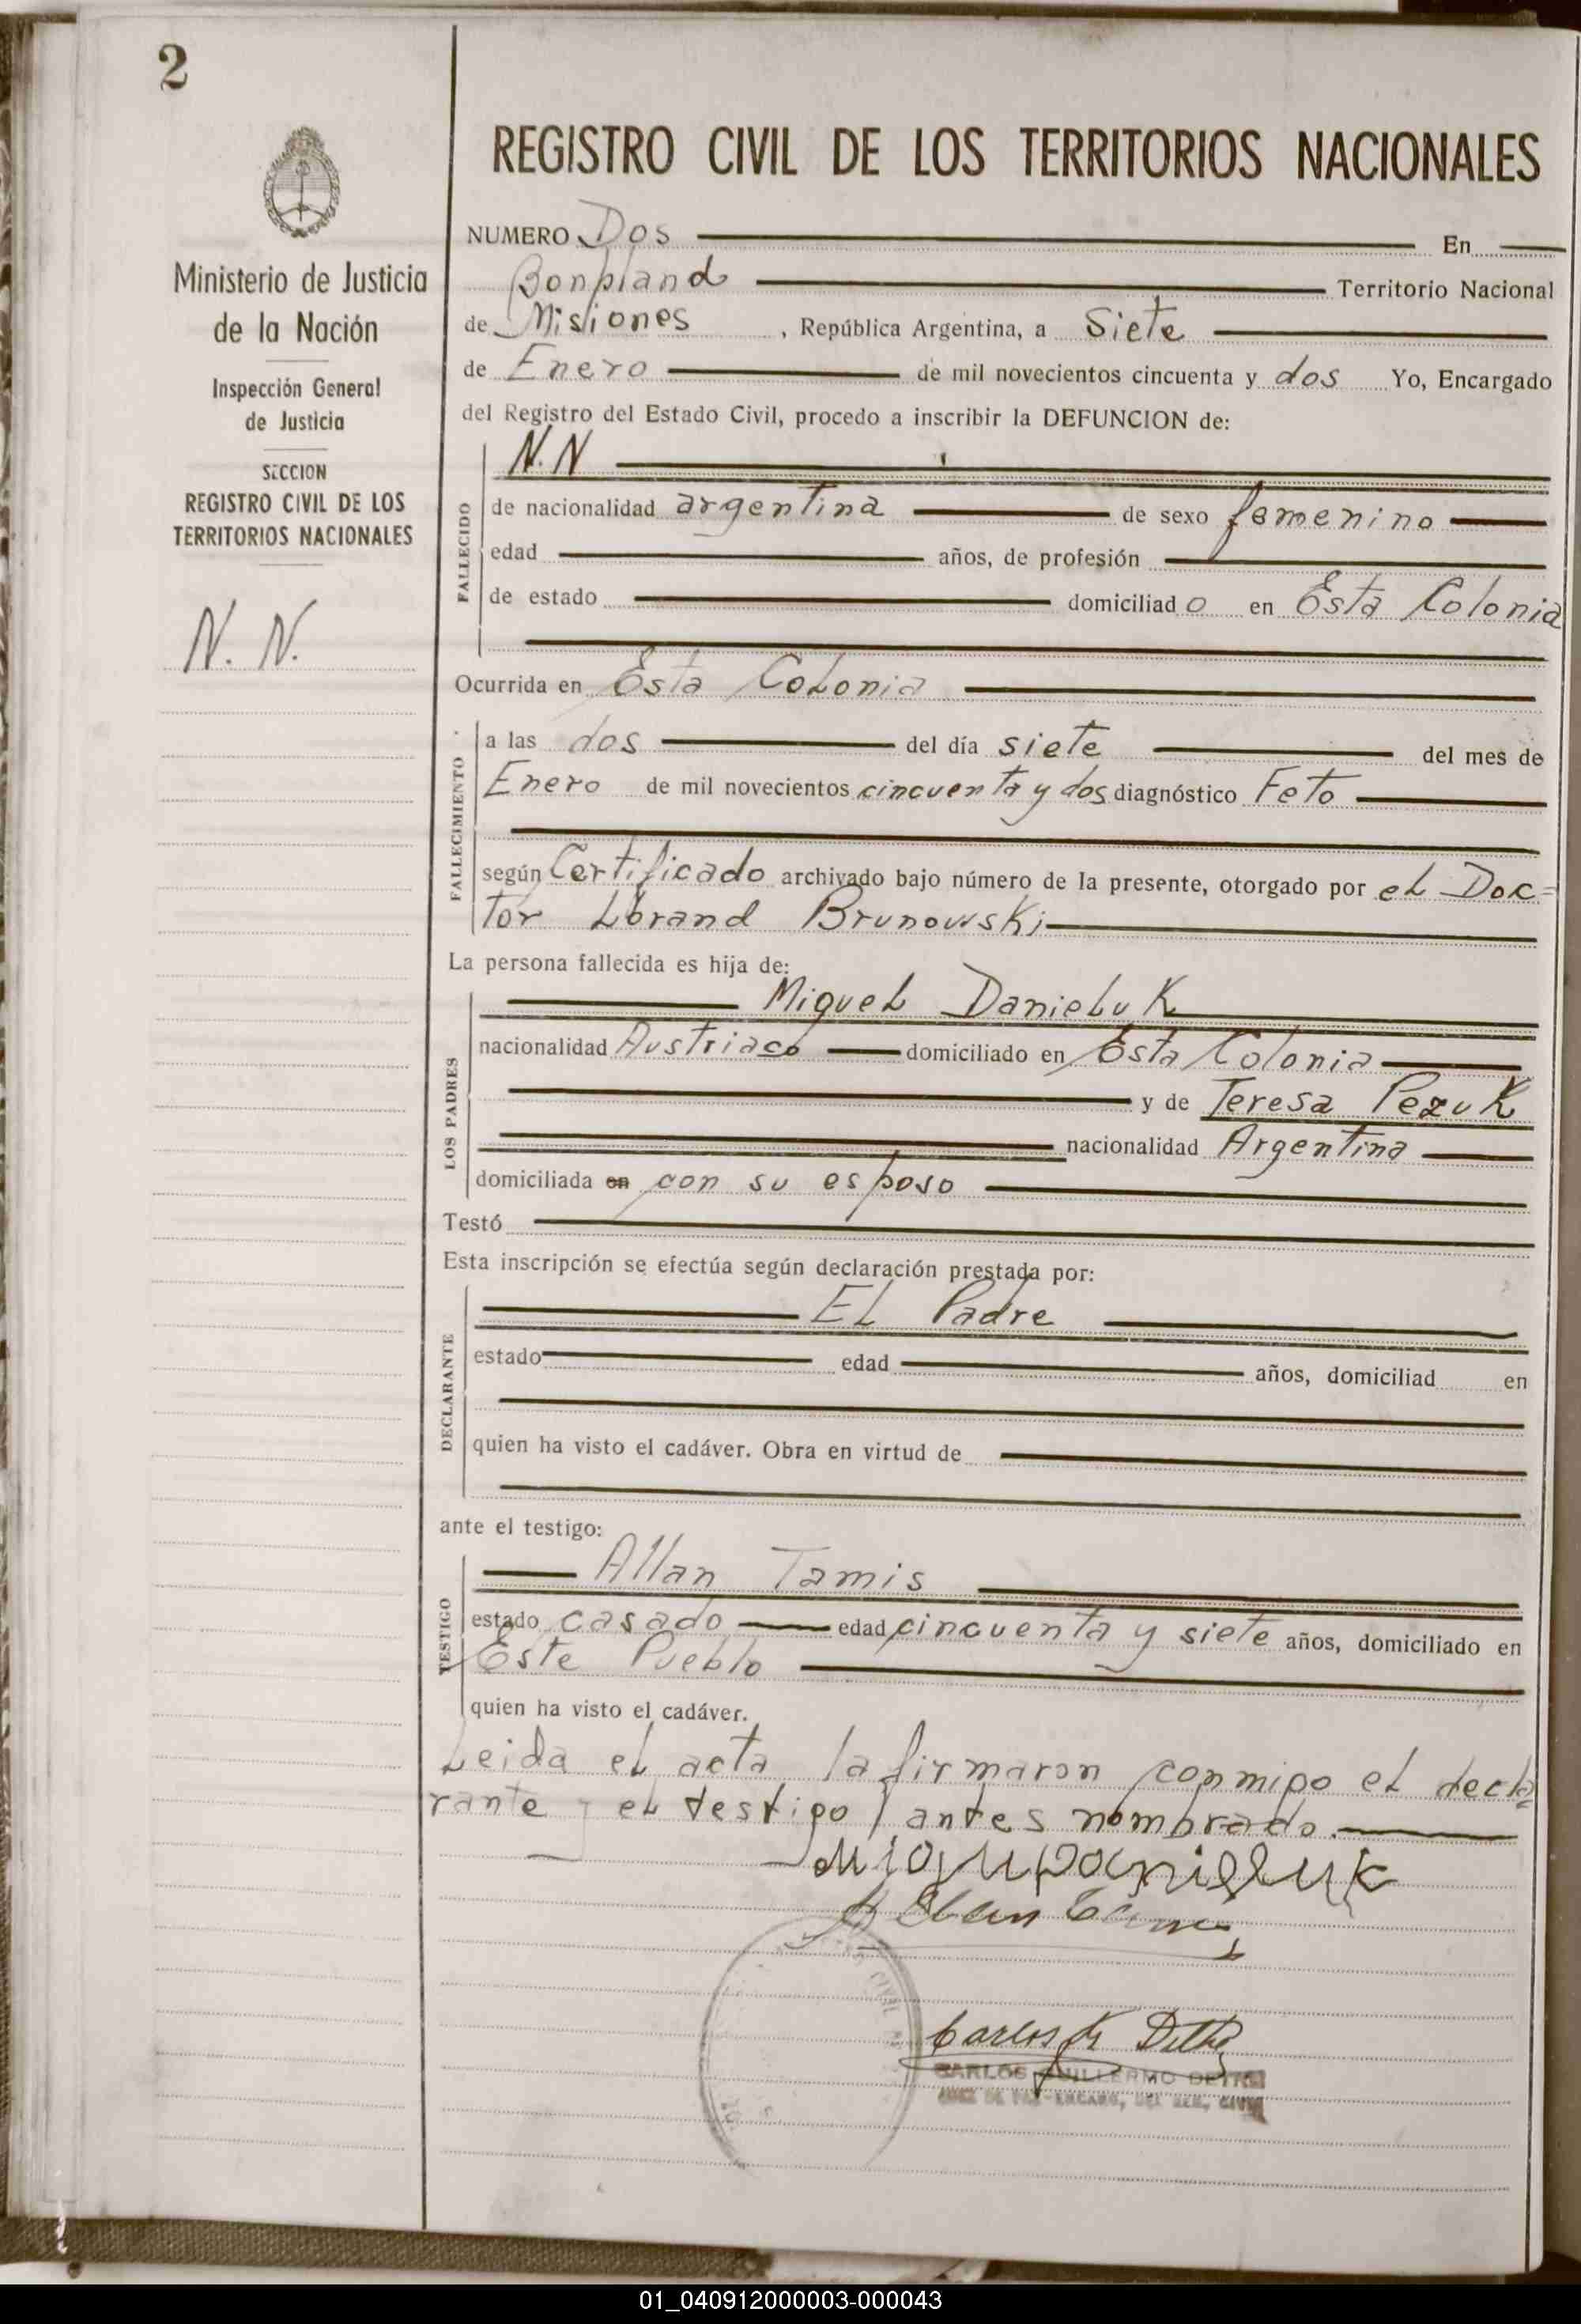 2
Ministerio de Justicia
de la Nación
Inspección General
de Justicia
SECCION
REGISTRO CIVIL DE LOS
TERRITORIOS NACIONALES
N. N.
REGISTRO CIVIL DE LOS TERRITORIOS NACIONALES
NUMERO Dos En
Bonpland Territorio Nacional
de Misiones , República Argentina, a Siete
de Enero de mil novecientos cincuenta y dos Yo, Encargado
del Registro del Estado Civil, procedo a inscribir la DEFUNCION de:
FALLECIDO
N. N
de nacionalidad argentina de sexo femenino
edad años, de profesión
de estado domiciliad o en Esta Colonia
Ocurrida en Esta Colonia
FALLECIMIENTO
a las dos del día siete del mes de
Enero de mil novecientos cincuenta y dos diagnóstico Feto
según Certificado archivado bajo número de la presente, otorgado por el Doc=
tor Lorand Brunowski
La persona fallecida es hija de:
LOS PADRES
Miguel Danieluk
nacionalidad Austriaco domiciliado en Esta Colonia
y de Teresa Pezuk
nacionalidad Argentina
domiciliada en con su esposo
Testó
Esta inscripción se efectúa según declaración prestada por:
DECLARANTE
El Padre
estado edad años, domiciliad en
quien ha visto el cadáver. Obra en virtud de
ante el testigo:
TESTIGO
Allan Tamis
estado casado edad cincuenta y siete años, domiciliado en
Este Pueblo
quien ha visto el cadáver.
Leida el acta la firmaron conmigo el decla=
rante y el testigo antes nombrado.
CIVIL
CARLOS GUILLERMO
JUEZ DE PAZ-ENCARG. DEL REG. CIVIL
01_040912000003-000043